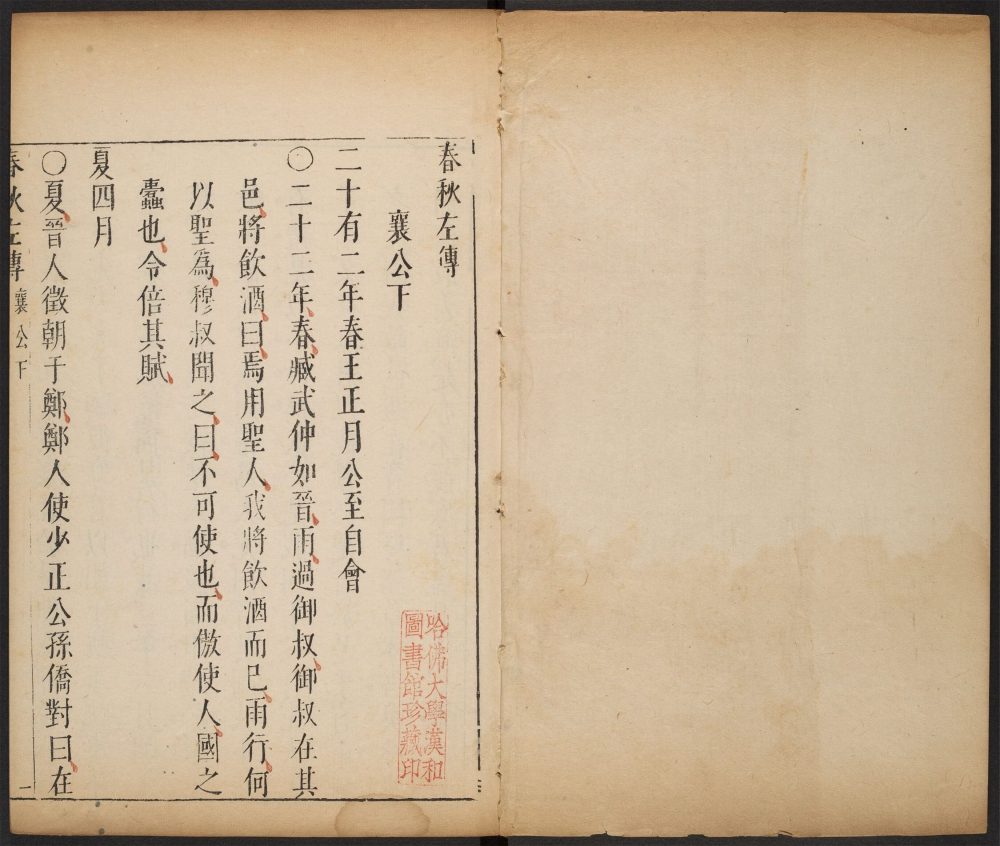 春秋左傳
襄公下
二十有二年春王正月公至自會
○二十二年春臧武仲如晉雨過御叔御叔在其
邑將飲酒曰焉用聖人我將飲酒而已雨行何
以聖為穆叔聞之曰不可使也而傲使人國之
蠹也令倍其賦
夏四月
○夏晉人徵朝于鄭鄭人使少正公孫僑對曰在
春秋左傳 襄公下 一
哈佛大學漢和
圖書館珍藏印